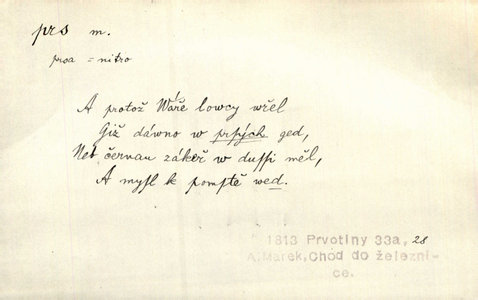 prs m.
prsa = nitro
A protož Wáře lowcy wřel
Giž dáwno w prsých ged,
Neb červau zákeř w dussi měl,
A mysl k pomstě wed.
1813 Prvotiny 33a, 28
A. Marek, Chod do železni-
ce.